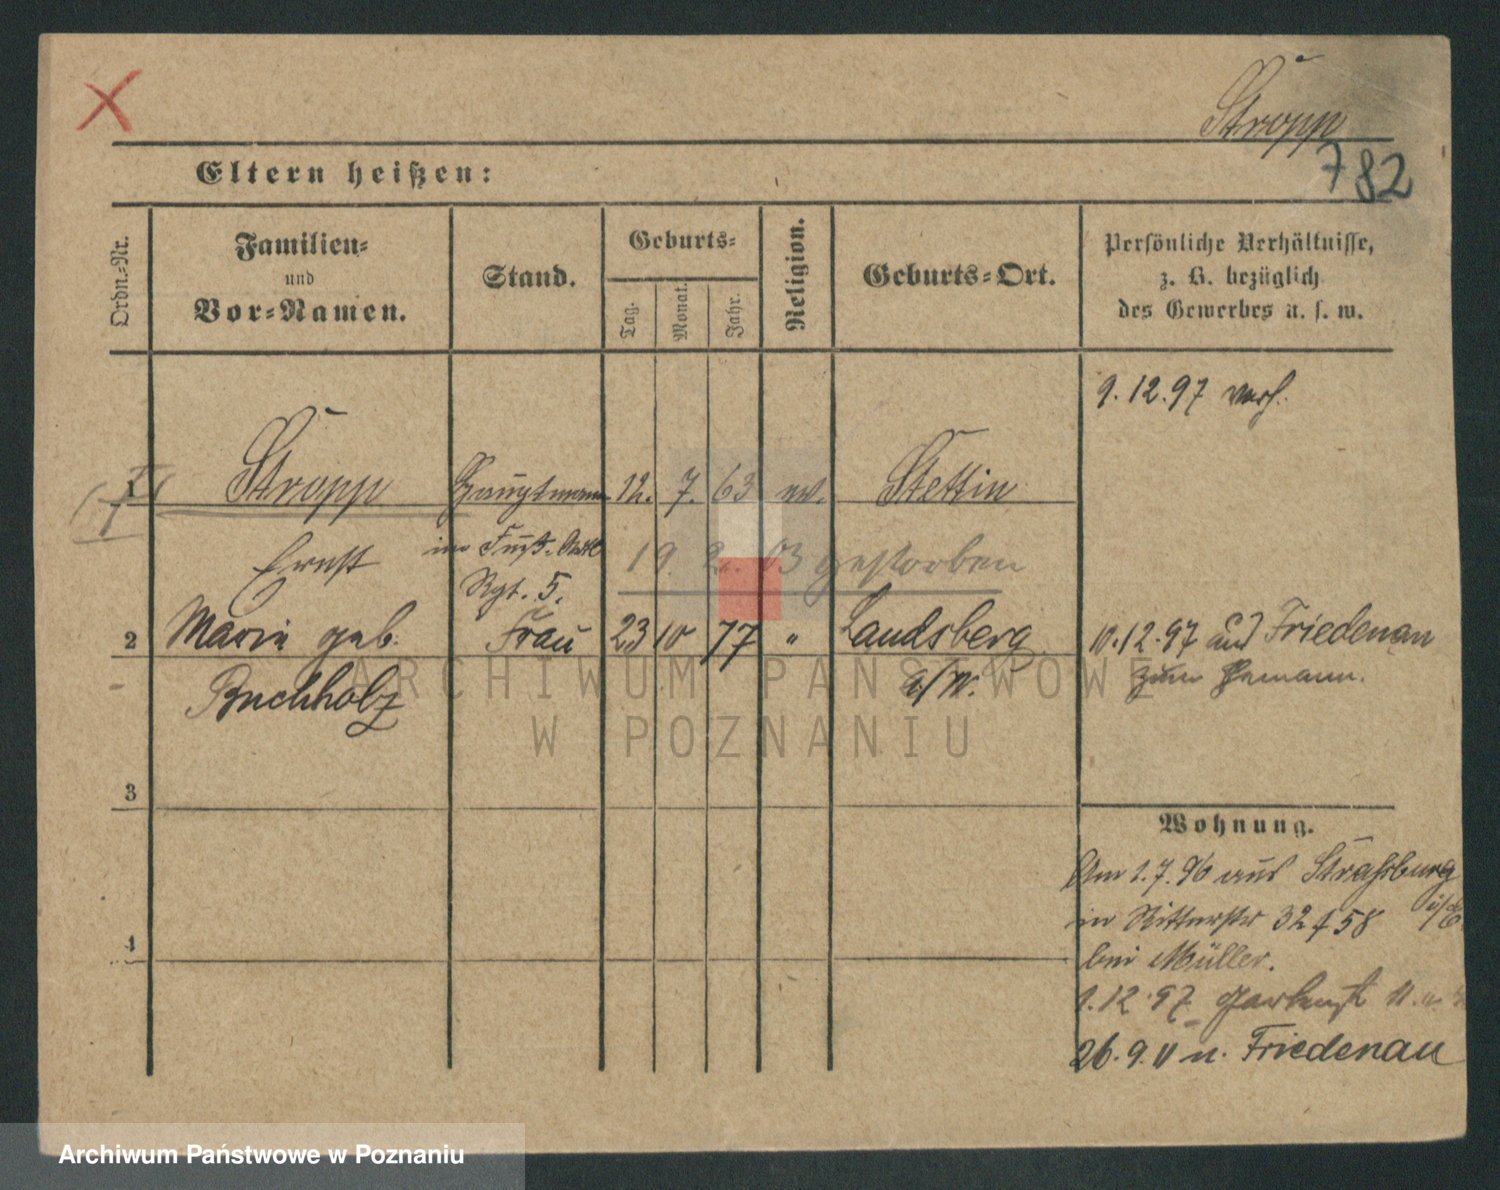 Stropp
782
Eltern heißen:
Ordn.-Nr.
Familien-
und
Vor-Namen.
Stand.
Geburts-
Tag.
Monat.
Jahr.
Religion.
Geburts-Ort.
Persönliche Verhältnisse,
z. B. bezüglich
des Gewerbes u. s. w.
9.12.97 verh.
1 Stropp Hauptmann 12. 7. 63 ev. Stettin
Ernst im Fuß-
19. 2. 03 gestorben
Rgt. 5.
2 Marie geb. Frau 23 10 77 " Landsberg
10.12.97 aus Friedenau
Buchholz a/W. zum Ehemann.
3
4
Wohnung.
Am 1.7.96 aus Strassburg
i/E
in Ritterstr 32 58
bei Müller.
1.12.97
26.9. n. Friedenau
ARCHIWUM PAŃSTWOWE
W POZNANIU
Archiwum Państwowe w Poznaniu